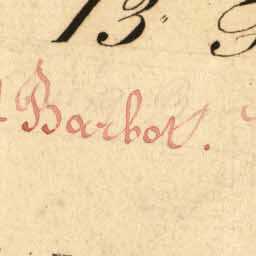 13"
Barbot.